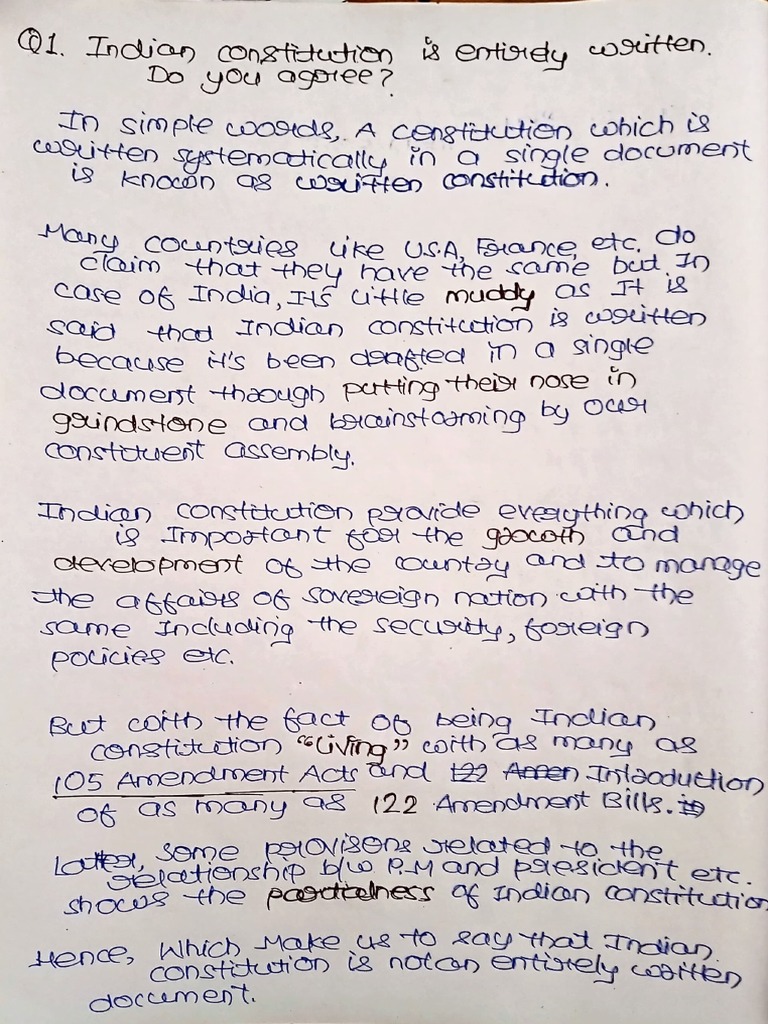 Q1. Indian constitution is entirely written.
Do you agree?
In simple words, A constitution which is
written systematically in a single document
is known as written constitution.
Many countries like U.S.A, France, etc. do
claim that they have the same but In
case of India, Its little muddy as It is
said that Indian constitution is written
because it's been drafted in a single
document through putting their nose in
grindstone and brainstorming by our
constituent assembly.
Indian constitution provide everything which
is Important for the growth and
development of the country and to manage
the affairs of sovereign nation with the
same Including the security, foreign
policies etc.
But with the fact of being Indian
constitution "living" with as many as
105 Amendment Acts and 122 Amen Introduction
of as many as 122 Amendment Bills.
Latter, some provisons related to the
relationship b/w P.M and president etc.
shows the partialness of Indian constitution
Hence, Which Make us to say that Indian
constitution is not an entirely written
document.